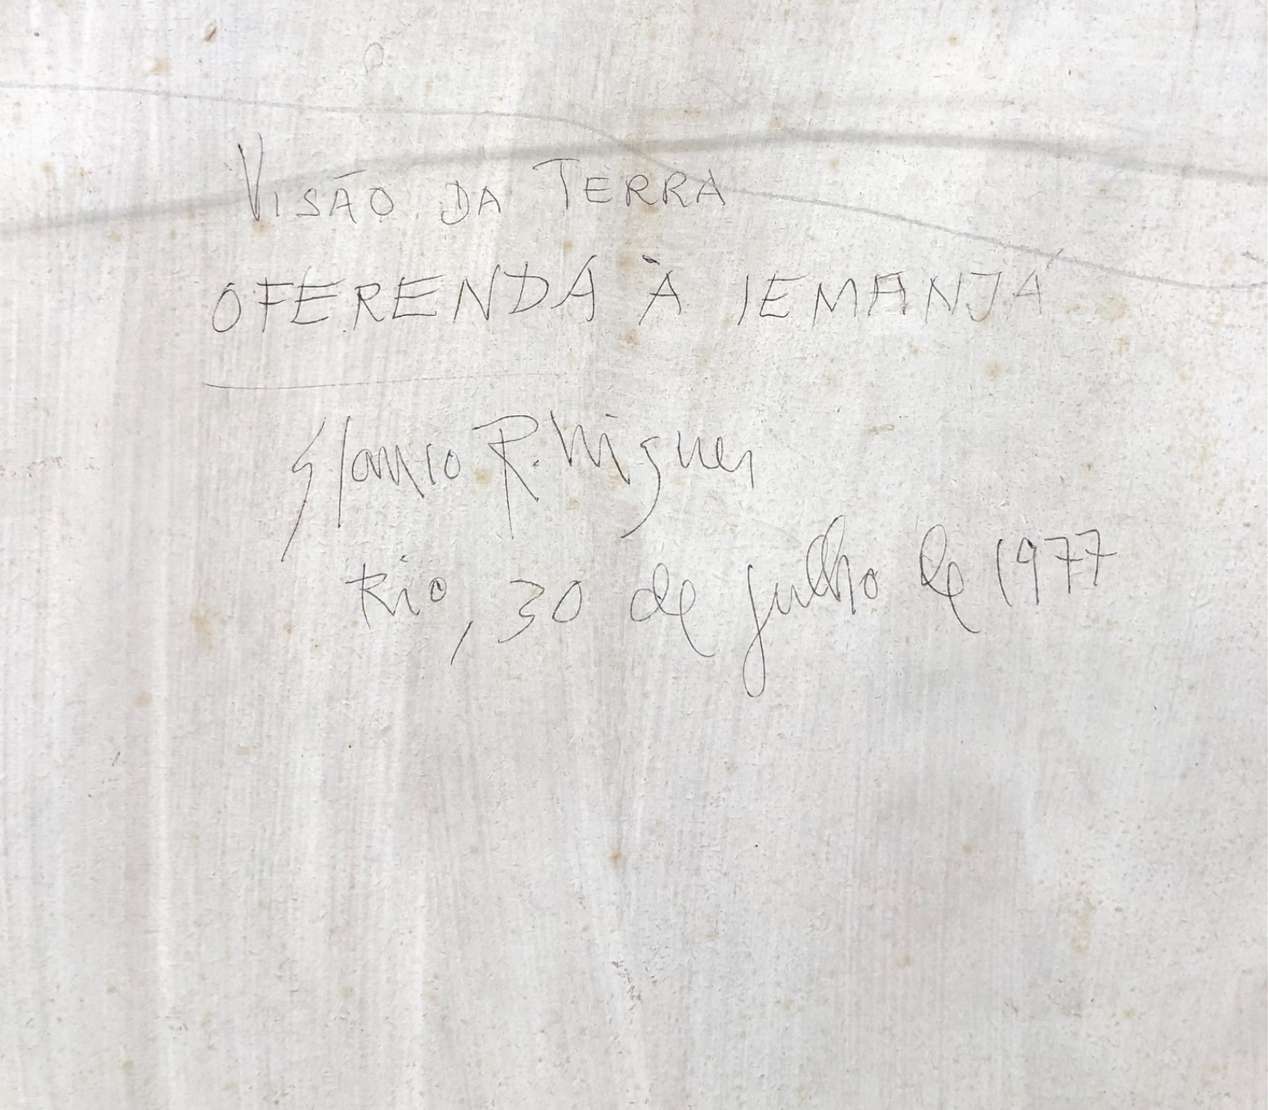 VISÃO DA TERRA
OFERENDA À IEMANJÁ
Glauco Rodrigues
Rio, 30 de julho de 1977